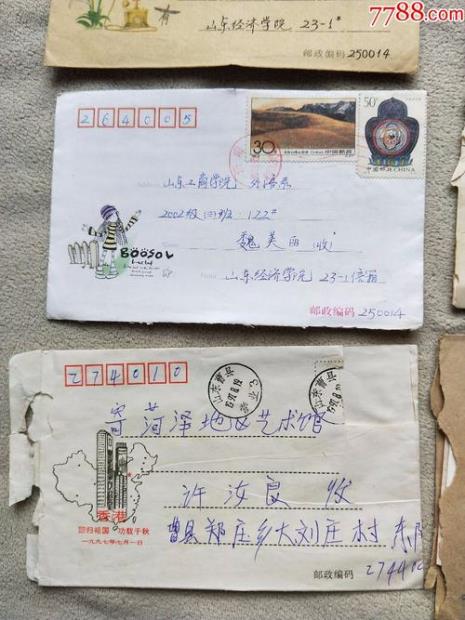 7788.com
山东经济学院 23-1#
邮政编码 250014
264005
30分
50分
中国邮政
中国邮政 CHINA
山东工商学院 外语系
2002级四班 122#
魏美丽 (收)
BOOSOL
山东经济学院 23-1信箱
邮政编码 250014
274010
山东曹县
寄 菏泽地区艺术馆
许汝良 收
香港
回归祖国 功载千秋
一九九七年七月一日
曹县郑庄乡大刘庄村
邮政编码